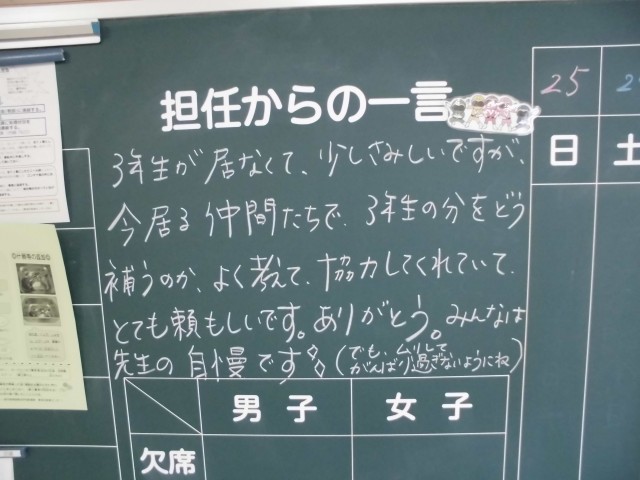 担任からの一言
25
日
土
3年生が居なくて、少しさみしいですが、
今居る仲間たちで、3年生の分をどう
補うのか、よく考えて、協力してくれていて、
とても頼もしいです。ありがとう。みんなは
先生の自慢です(でも、ムリして
がんばり過ぎないようにね)
男子
女子
欠席